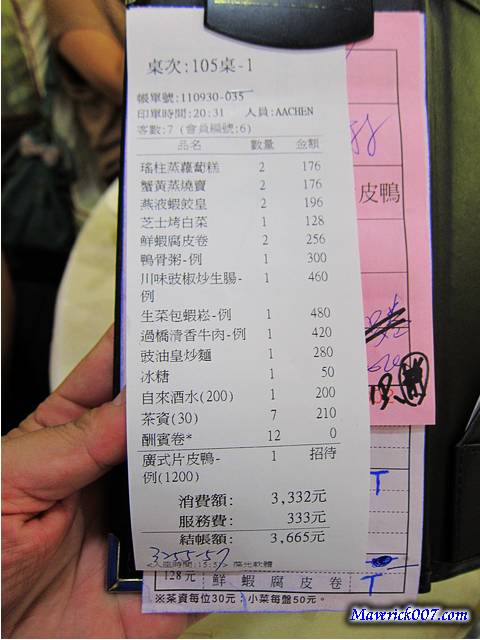 桌次:105桌-1
帳單號:110930-035
印單時間:20:31 人員:AACHEN
客數:7 (會員編號:6)
品名 數量 金額
瑤柱蒸蘿蔔糕 2 176
蟹黃蒸燒賣 2 176
燕液蝦餃皇 2 196
芝士烤白菜 1 128
鮮蝦腐皮卷 2 256
鴨骨粥-例 1 300
川味豉椒炒生腸- 1 460
例
生菜包蝦崧-例 1 480
過橋清香牛肉-例 1 420
豉油皇炒麵 1 280
冰糖 1 50
自來酒水(200) 1 200
茶資(30) 7 210
酬賓卷* 12 0
廣式片皮鴨- 1 招待
例(1200)
消費額: 3,332元
服務費: 333元
結帳額: 3,665元
3255-57
皮鴨
T
128元 鮮 蝦 腐 皮 卷 T
※茶資每位30元；小菜每盤50元。
Maverick007.com